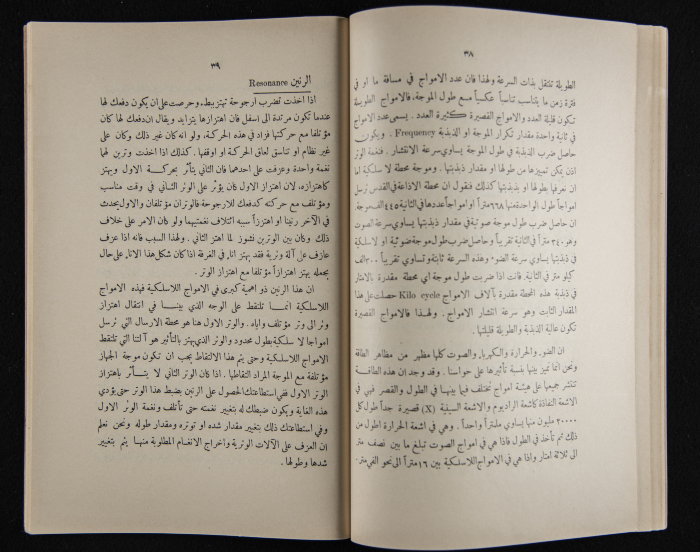 ٣٨
الطويلة تنتقل بذات السرعة ولهذا فان عدد الامواج في مسافة ما او في
فترة زمن ما يتناسب تناسباً عكسياً مع طول الموجة، فالامواج الطويلة
تكون قليلة العدد والامواج القصيرة كثيرة العدد. يسمى عدد الامواج
في ثانية واحدة مقدار تكرار الموجة او الذبذبة Frequency . ويكون
حاصل ضرب الذبذبة في طول الموجة يساوي سرعة الانتشار. فنغمة الوتر
اذن يمكن تمييزها من طولها او مقدار ذبذبتها. وموجة محطة لاسلكية اما
ان نعرفها بطولها او بذبذبتها كذلك فنقول ان محطة الاذاعة في القدس ترسل
امواجاً طول الواحدة منها ٦٦٨ متراً او امواجاً عددها في الثانية ٤٤٥ الف موجة.
ان حاصل ضرب طول موجة صوتية في مقدار ذبذبتها يساوي سرعة الصوت
وهو ٣٤٠ متراً في الثانية تقريباً وحاصل ضرب طول موجة ضوئية او لاسلكية
في ذبذبتها يساوي سرعة الضوء وهذه السرعة ثابتة وتساوي تقريباً ٣٠٠ الف
كيلو متر في الثانية. فانت اذا ضربت طول موجة اي محطة مقدرة بالامتار
في ذبذبة هذه المحطة مقدرة بآلاف الامواج Kilo cycle حصلت على هذا
المقدار الثابت وهو سرعة انتشار الامواج. ولهذا فالامواج القصيرة
تكون عالية الذبذبة والطويلة قليلتها.
ان الضوء والحرارة والكهرباء والصوت كلها مظهر من مظاهر الطاقة
ونحن انما نميز بينها بنسبة تأثيرها على حواسنا. وقد وجد ان هذه الطاقة
تنتشر جميعها على هيئة امواج تختلف فيما بينها في الطول والقصر فهي في
الاشعة النفاذة كاشعة الراديوم والاشعة السينية (X) قصيرة جداً طول كل
٢٠٠٠٠ مليون منها يساوي ملمتراً واحداً. وهي في اشعة الحرارة اطول من
ذلك ثم تأخذ في الطول فاذا هي في امواج الصوت تبلغ ما بين نصف متر
الى ثلاثة امتار واذا هي في الامواج اللاسلكية بين ١٦ متراً الى نحو الفي متر.
٣٩
الرنين Resonance
اذا اخذت تضرب ارجوحة تهتز ببطء، وحرصت على ان يكون دفعك لها
عندما تكون مرتدة الى اسفل فان اهتزازها يتزايد ويقال ان دفعك لها كان
مؤتلفا مع حركتها فزاد في هذه الحركة، ولو انه كان غير ذلك وكان على
غير نظام او تناسق لعاق الحركة او اوقفها. كذلك اذا اخذت وترين لهما
نغمة واحدة وعزفت على احدهما فان الثاني يتأثر بحركة الاول ويهتز
كاهتزازه، لان اهتزاز الاول كان يؤثر على الوتر الثاني في وقت مناسب
ومؤتلف مع حركته كدفعك للارجوحة فالوتران مؤتلفان والاول يحدث
في الآخر رنينا او اهتزازاً سببه ائتلاف نغمتيهما ولو كان الامر على خلاف
ذلك وكان بين الوترين نشوز لما اهتز الثاني. ولهذا السبب فانه اذا عزف
عازف على آلة وترية فقد يهتز انا، في الغرفة اذا كان شكل هذا الاناء على حال
يجعله يهتز اهتزازاً مؤتلفا مع اهتزاز الوتر.
ان هذا الرنين ذو اهمية كبرى في الامواج اللاسلكية فهذه الامواج
اللاسلكية انما تلتقط على الوجه الذي بينا في انتقال اهتزاز
وتر الى وتر مؤتلف واياه. والوتر الاول هنا هو محطة الارسال التي ترسل
امواجا لاسلكية بطول محدود والوتر الذي يهتز بالتأثير هو آلتنا التي تلتقط
الامواج اللاسلكية وحتى يتم هذا الالتقاط يجب ان تكون موجة الجهاز
مؤتلفة مع الموجة المراد التقاطها. اذا كان الوتر الثاني لا يتأثر باهتزاز
الوتر الاول ففي استطاعتك الحصول على الرنين بضبط هذا الوتر حتى يؤدي
هذه الغاية ويكون ضبطك له بتغيير نغمته حتى تأتلف ونغمة الوتر الاول
وفي استطاعتك ذلك بتغيير مقدار شده او توتره ومقدار طوله ونحن نعلم
ان العزف على الآلات الوترية واخراج الانغام المطلوبة منها يتم بتغيير
شدها وطولها.